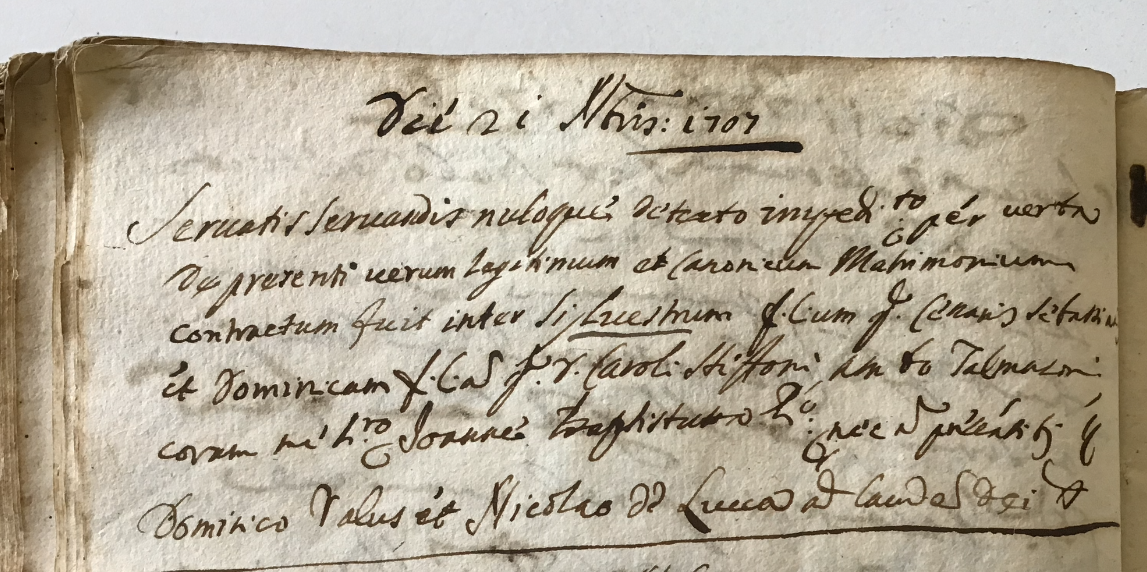 Die 21 Nbris: 1707
Seruatis seruandis nuloque detecto impedi:to per verba
De presenti uerum legitimum et Canonicum Matrimonium
contractum fuit inter Siluestrum f. Cum q.
et Dominicam f. Cam q. r. Caroli Stiffoni, am bo Talmasoni
coram me Joanne Baptista nec n
Dominico Valus et Nicolao De Lucca ad laudem Dei